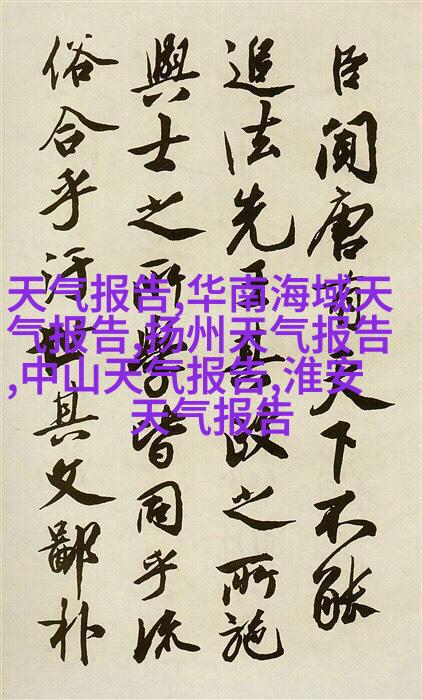 臣聞唐天下不能
追法先王政之所施
與士之所學皆同乎流
俗合乎汙世其文鄙朴
天气报告,华南海域天
气报告,扬州天气报告
,中山天气报告,淮安
天气报告